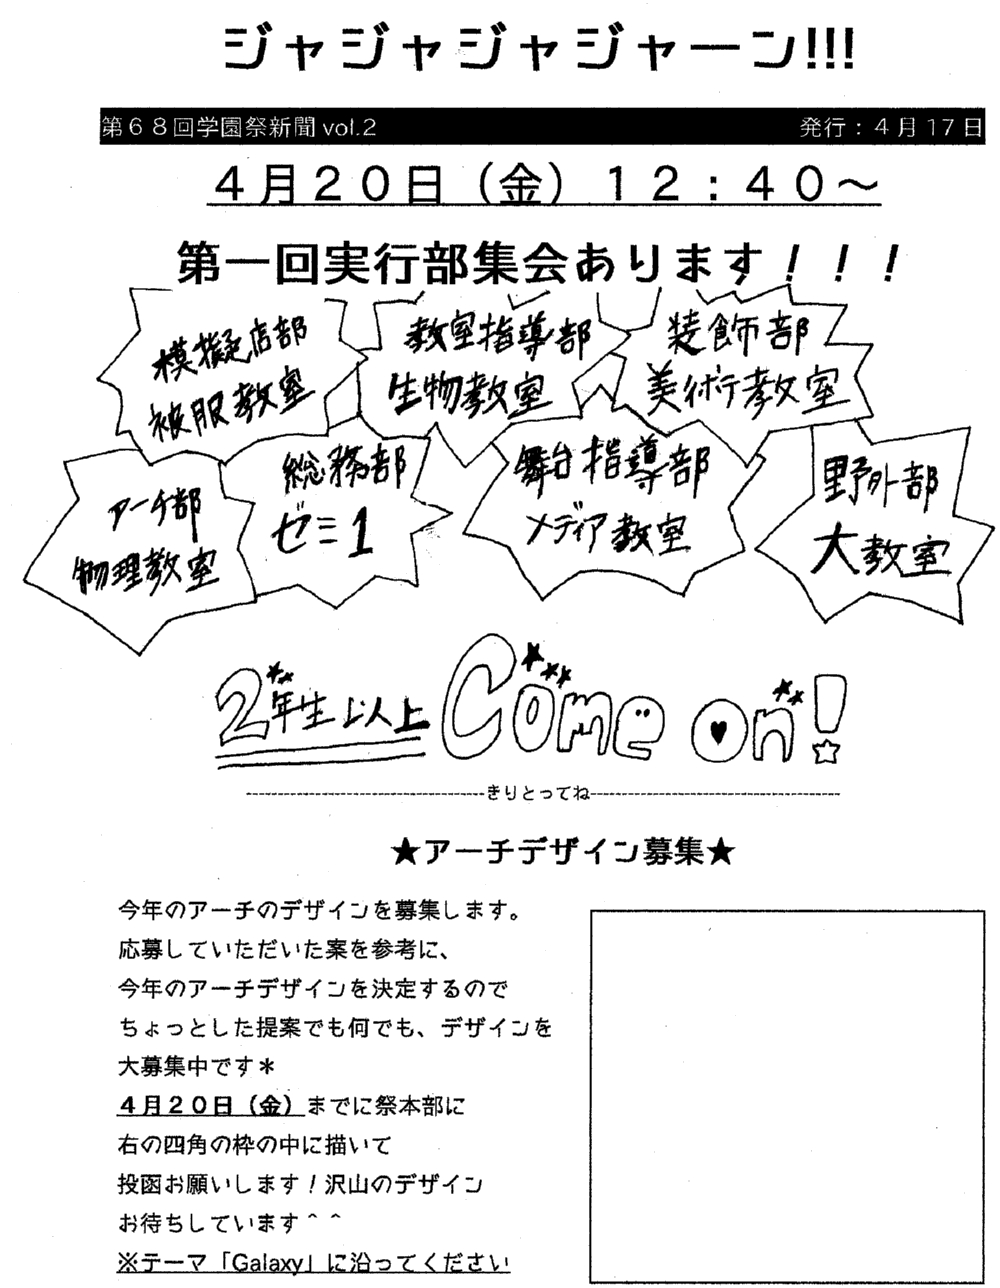 ジャジャジャジャーン!!!
第６８回学園祭新聞 vol.2 発行：４月17日
４月２０日（金）１２：４０～
第一回実行部集会あります！！！
模擬店部
被服教室
教室指導部
生物教室
装飾部
美術教室
アーチ部
物理教室
総務部
ゼミ1
舞台指導部
メディア教室
野外部
大教室
2年生以上 Come on!
きりとってね
★アーチデザイン募集★
今年のアーチのデザインを募集します。
応募していただいた案を参考に、
今年のアーチデザインを決定するので
ちょっとした提案でも何でも、デザインを
大募集中です＊
４月２０日（金）までに祭本部に
右の四角の枠の中に描いて
投函お願いします！沢山のデザイン
お待ちしています＾＾
※テーマ「Galaxy」に沿ってください